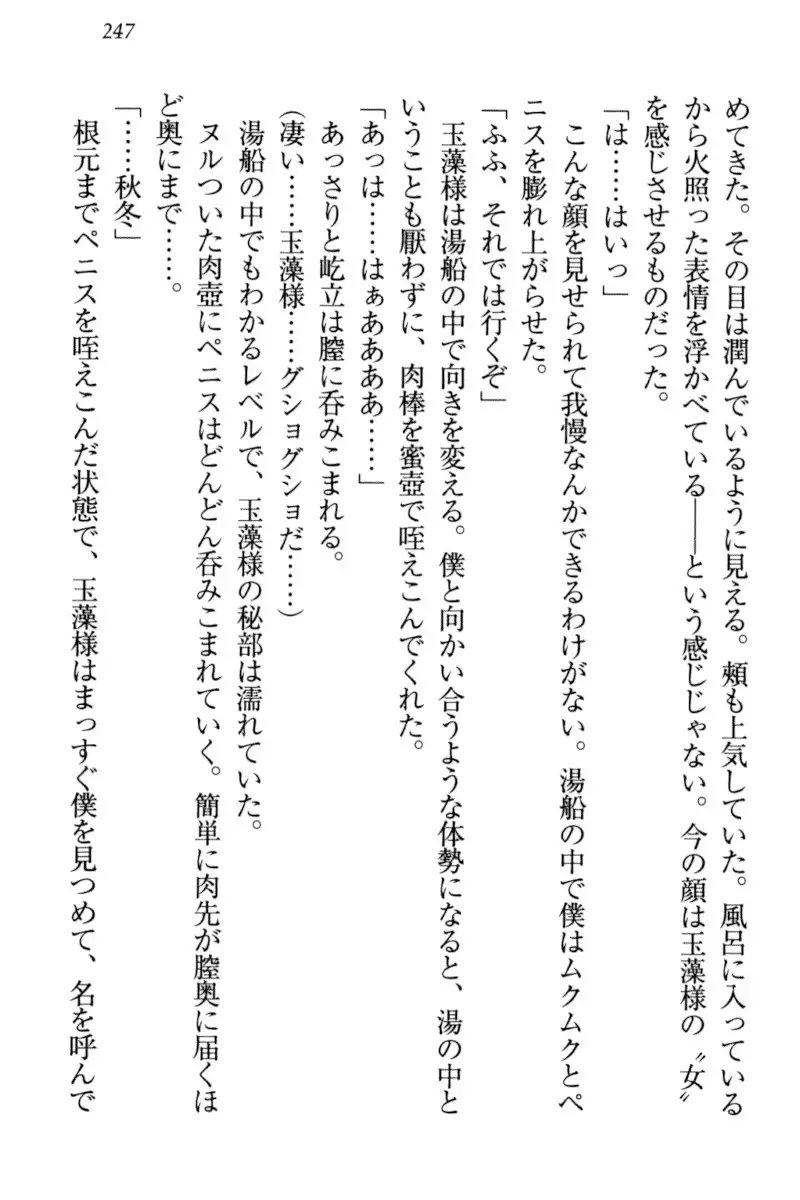 247
めてきた。その目は潤んでいるように見える。頬も上気していた。風呂に入っている
から火照った表情を浮かべている――という感じじゃない。今の顔は玉藻様の〝女〟
を感じさせるものだった。
「は……はいっ」
こんな顔を見せられて我慢なんかできるわけがない。湯船の中で僕はムクムクとペ
ニスを膨れ上がらせた。
「ふふ、それでは行くぞ」
玉藻様は湯船の中で向きを変える。僕と向かい合うような体勢になると、湯の中と
いうことも厭わずに、肉棒を蜜壺で咥えこんでくれた。
「あっは……はぁああああ……」
あっさりと屹立は膣に呑みこまれる。
(凄い……玉藻様……グショグショだ……)
湯船の中でもわかるレベルで、玉藻様の秘部は濡れていた。
ヌルついた肉壺にペニスはどんどん呑みこまれていく。簡単に肉先が膣奥に届くほ
ど奥にまで……。
「……秋冬」
根元までペニスを咥えこんだ状態で、玉藻様はまっすぐ僕を見つめて、名を呼んで